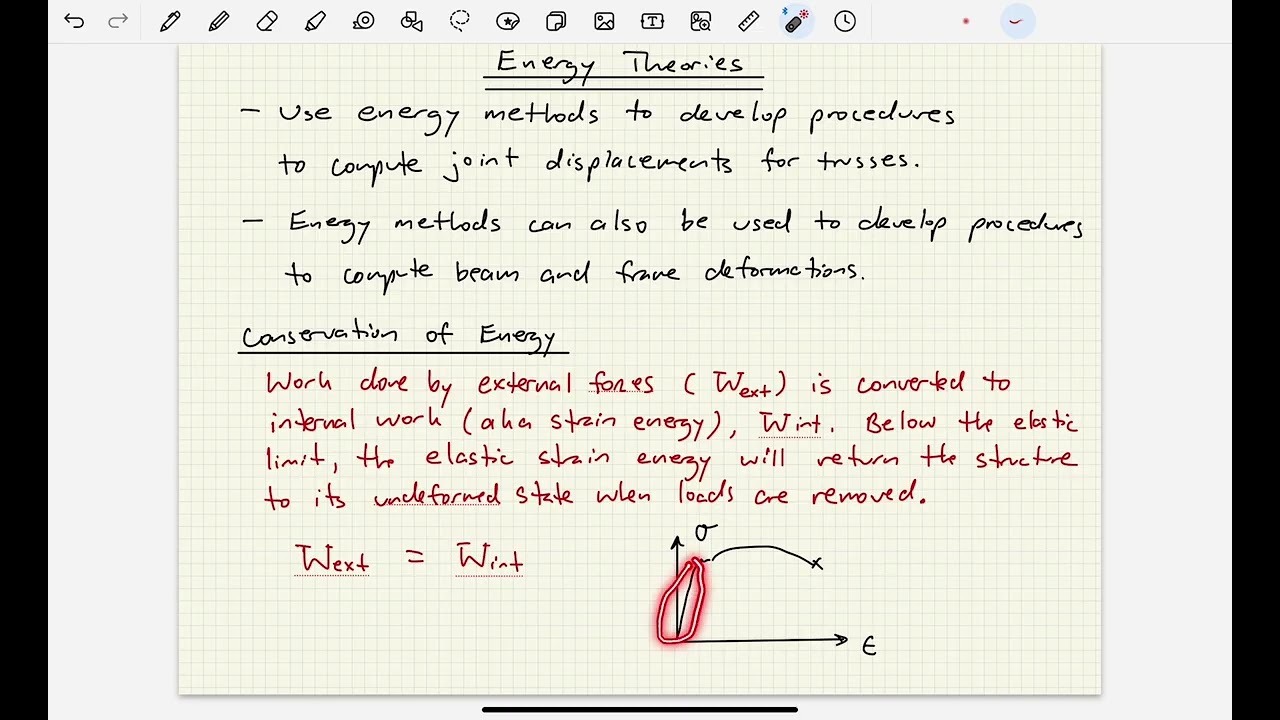 Energy Theories
- Use energy methods to develop procedures
to compute joint displacements for trusses.
- Energy methods can also be used to develop procedures
to compute beam and frame deformations.
Conservation of Energy
Work done by external forces (Wext) is converted to
internal work (aka strain energy), Wint. Below the elastic
limit, the elastic strain energy will return the structure
to its undeformed state when loads are removed.
σ
Wext = Wint
ϵ